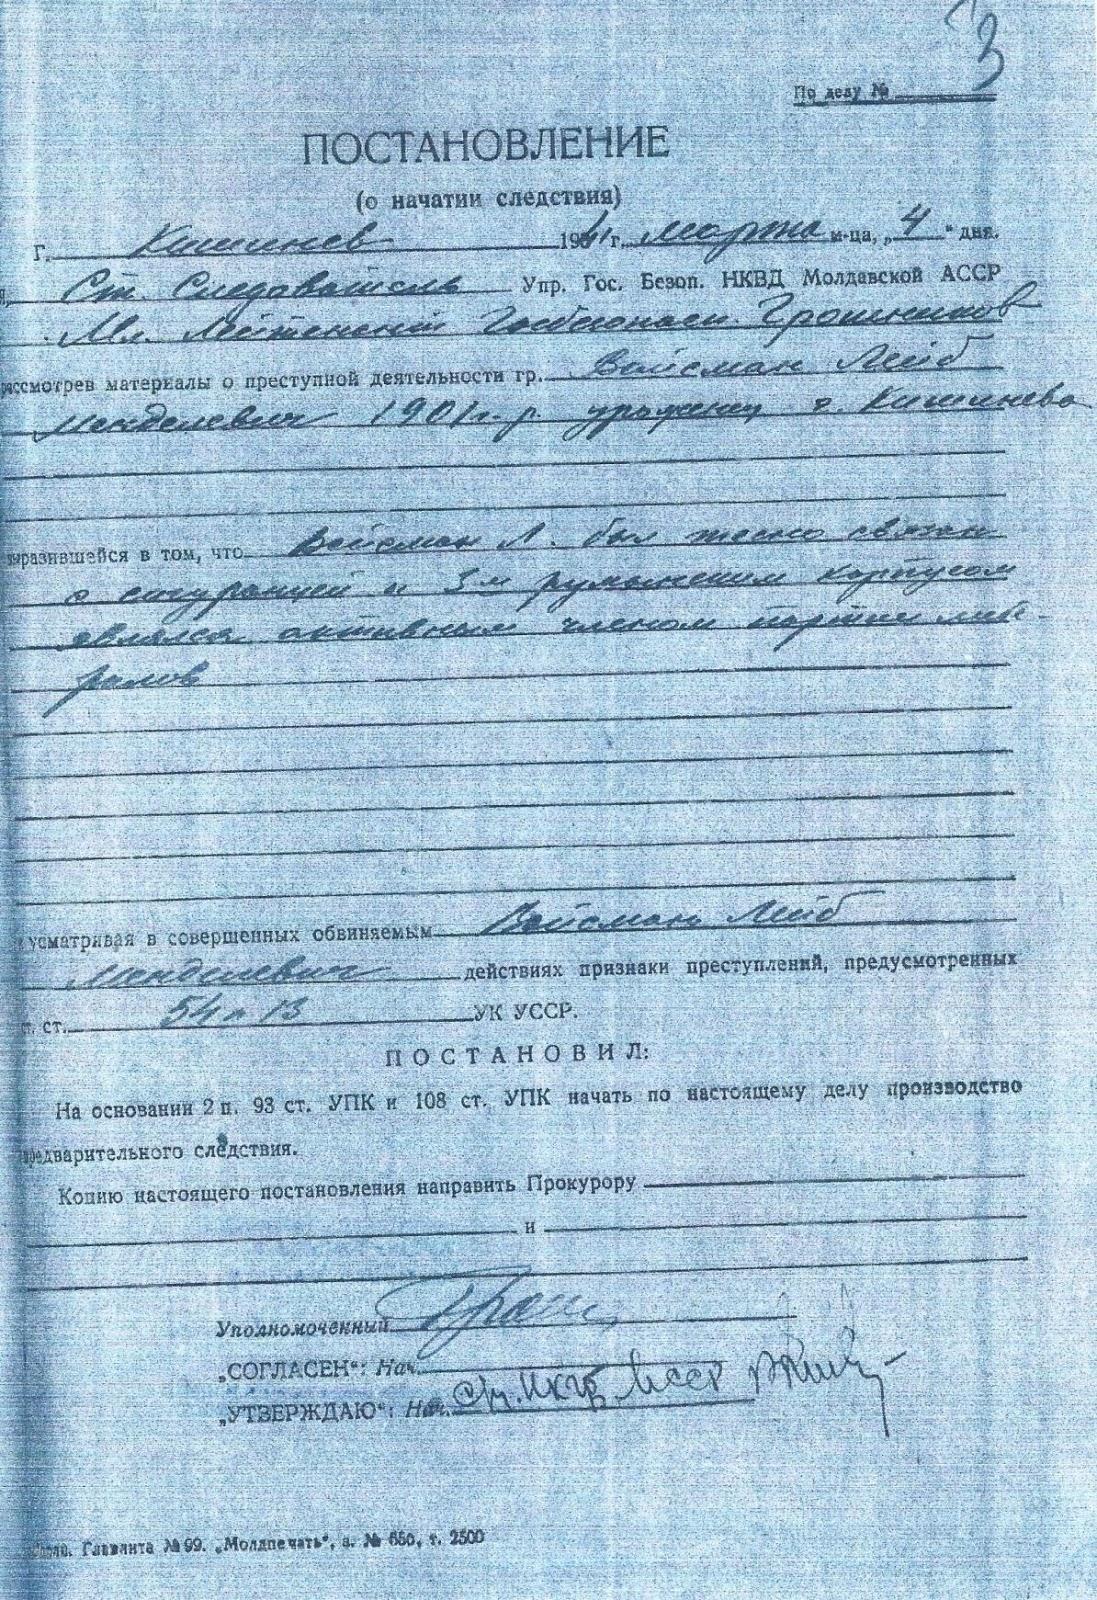 3
По делу №
ПОСТАНОВЛЕНИЕ
(о начатии следствия)
г. Кишинев 1941 г. марта м-ца, „4“ дня.
Я, Ст. Следователь Упр. Гос. Безоп. НКВД Молдавской АССР
Мл. Лейтенант Госбезопасн. Грошников
рассмотрев материалы о преступной деятельности гр. Вайсман Лейб
Менделевич 1901 г. р. урожен. г. Кишинева
выразившейся в том, что Вайсман Л. был тесно связан
с сигуранцей и 3м румынским корпусом
являлся активным членом партии либе-
ралов
и усматривая в совершенных обвиняемым Вайсман Лейб
Менделевич действиях признаки преступлений, предусмотренных
ст. ст. 54 п 13 УК УССР.
ПОСТАНОВИЛ:
На основании 2 п. 93 ст. УПК и 108 ст. УПК начать по настоящему делу производство
предварительного следствия.
Копию настоящего постановления направить Прокурору
и
Уполномоченный
„СОГЛАСЕН“: Нач.
„УТВЕРЖДАЮ“: Нач. НКГБ МССР
Главлита № 99. „Молдпечать“, з. № 650, т. 2500